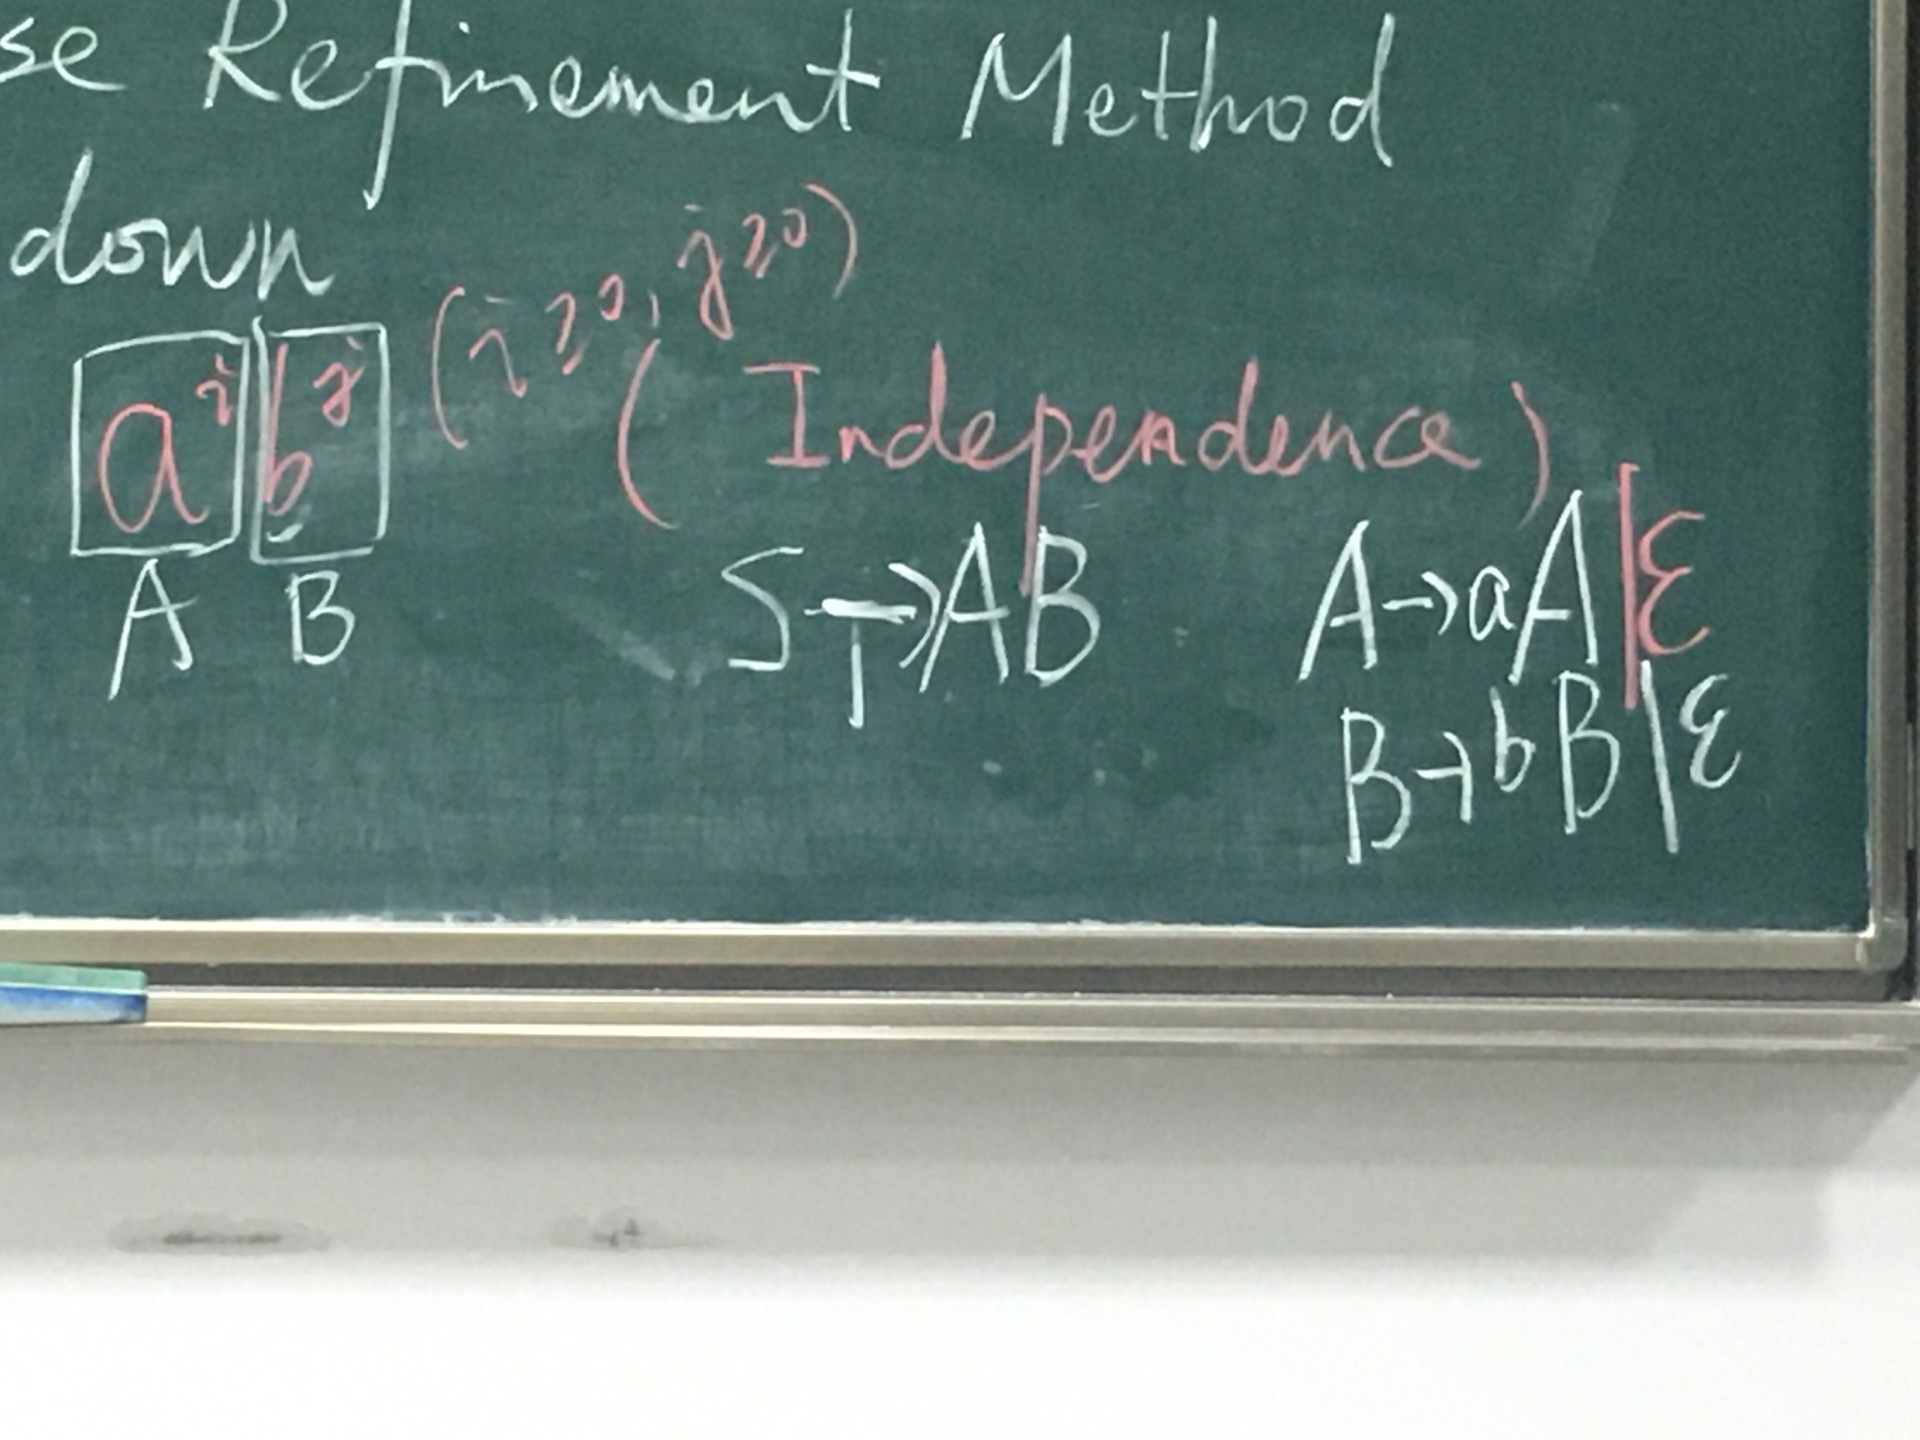 se Refinement Method
down
(i≥0, j≥0)
aⁱ bʲ (Independence)
A B S→AB A→aA|ε
B→bB|ε